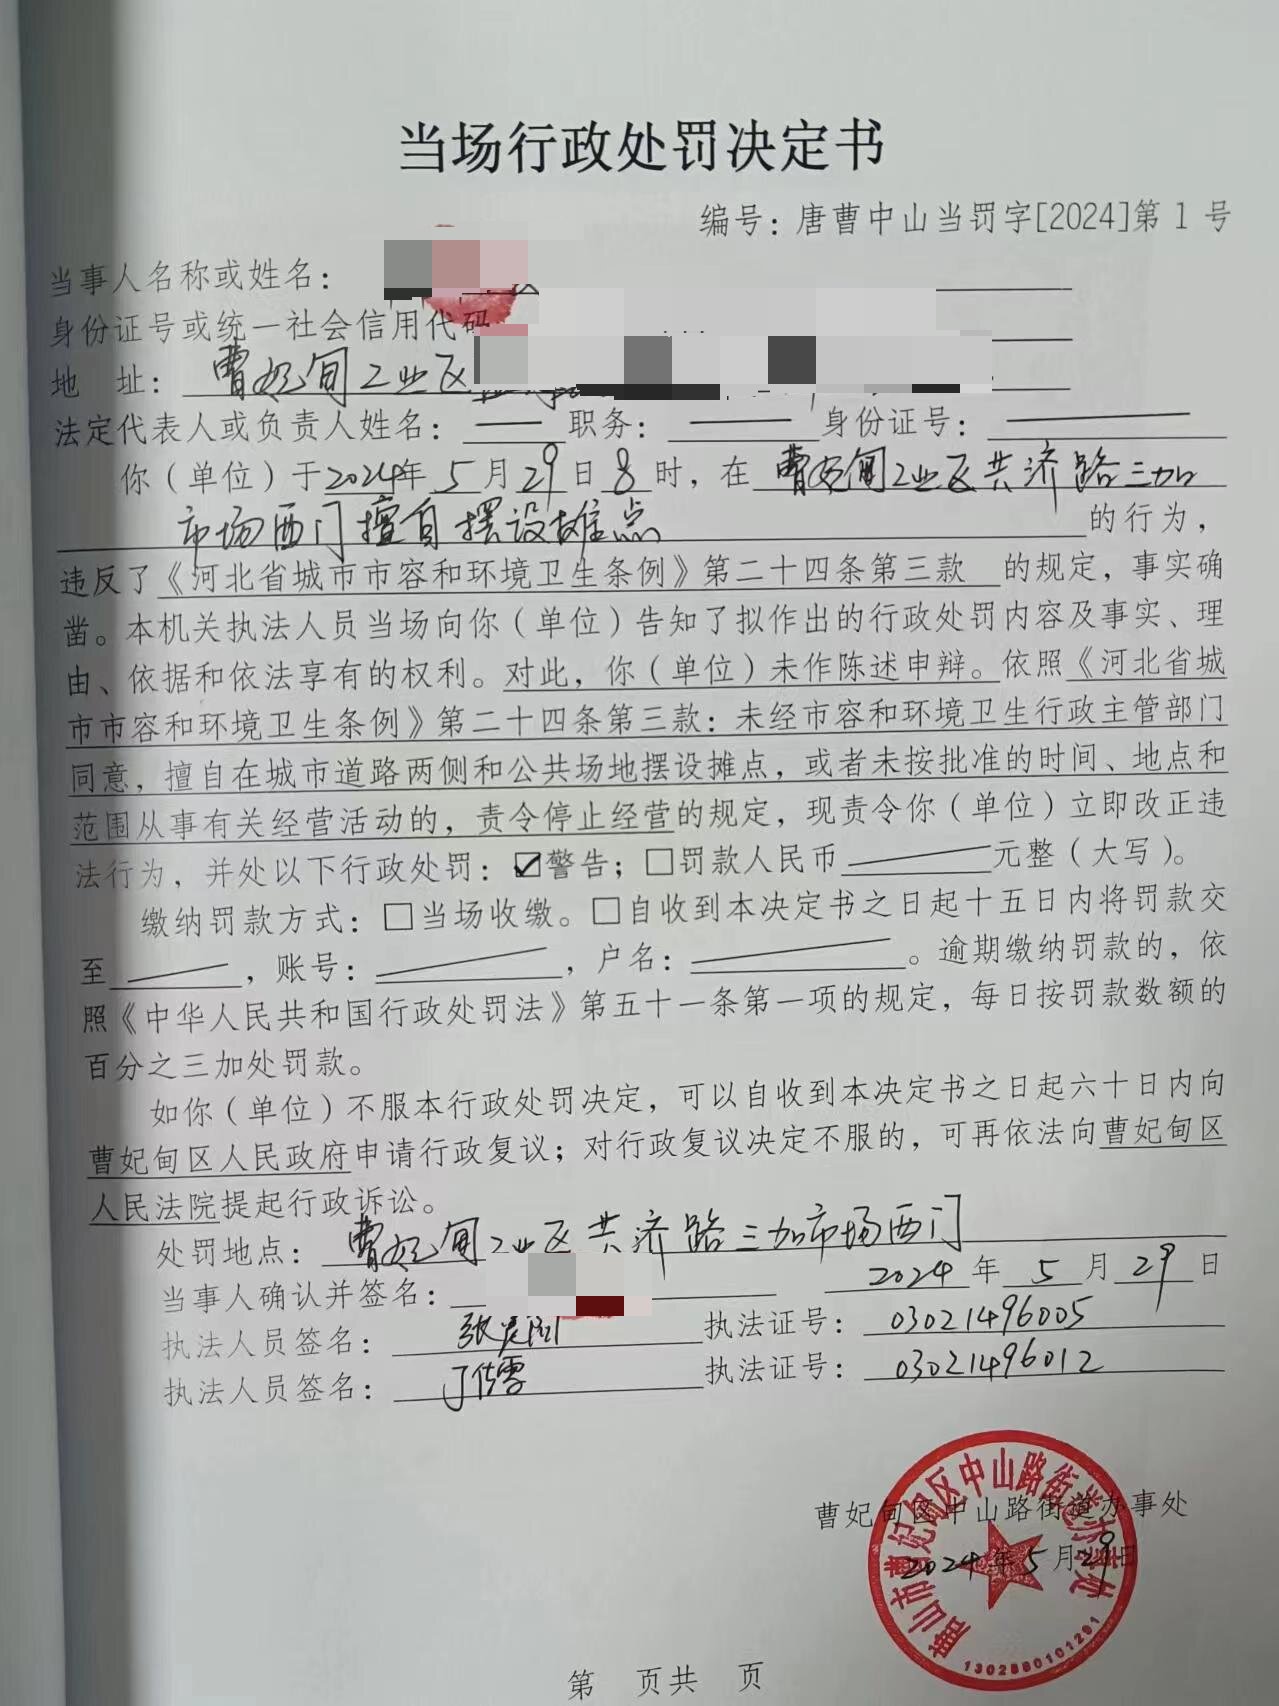 当场行政处罚决定书
编号：唐曹中山当罚字[2024]第 1 号
当事人名称或姓名：
身份证号或统一社会信用代码
地 址： 曹妃甸工业区
法定代表人或负责人姓名： 职务： 身份证号：
你（单位）于2024年 5 月 29 日 8 时，在 曹妃甸工业区共济路三加
市场西门擅自摆设摊点 的行为，
违反了《河北省城市市容和环境卫生条例》第二十四条第三款 的规定，事实确
凿。本机关执法人员当场向你（单位）告知了拟作出的行政处罚内容及事实、理
由、依据和依法享有的权利。对此，你（单位）未作陈述申辩。依照《河北省城
市市容和环境卫生条例》第二十四条第三款：未经市容和环境卫生行政主管部门
同意，擅自在城市道路两侧和公共场地摆设摊点，或者未按批准的时间、地点和
范围从事有关经营活动的，责令停止经营的规定，现责令你（单位）立即改正违
法行为，并处以下行政处罚：☑警告；☐罚款人民币 元整（大写）。
缴纳罚款方式：☐当场收缴。☐自收到本决定书之日起十五日内将罚款交
至 ，账号： ，户名： 。逾期缴纳罚款的，依
照《中华人民共和国行政处罚法》第五十一条第一项的规定，每日按罚款数额的
百分之三加处罚款。
如你（单位）不服本行政处罚决定，可以自收到本决定书之日起六十日内向
曹妃甸区人民政府申请行政复议；对行政复议决定不服的，可再依法向曹妃甸区
人民法院提起行政诉讼。
处罚地点： 曹妃甸工业区共济路三加市场西门
当事人确认并签名： 2024 年 5 月 29 日
执法人员签名： 张 执法证号： 03021496005
执法人员签名： 丁 执法证号： 03021496012
曹妃甸区中山路街道办事处
2024 年 5 月 29 日
唐山市曹妃甸区中山路街道办事处
1302880101281
第 页共 页